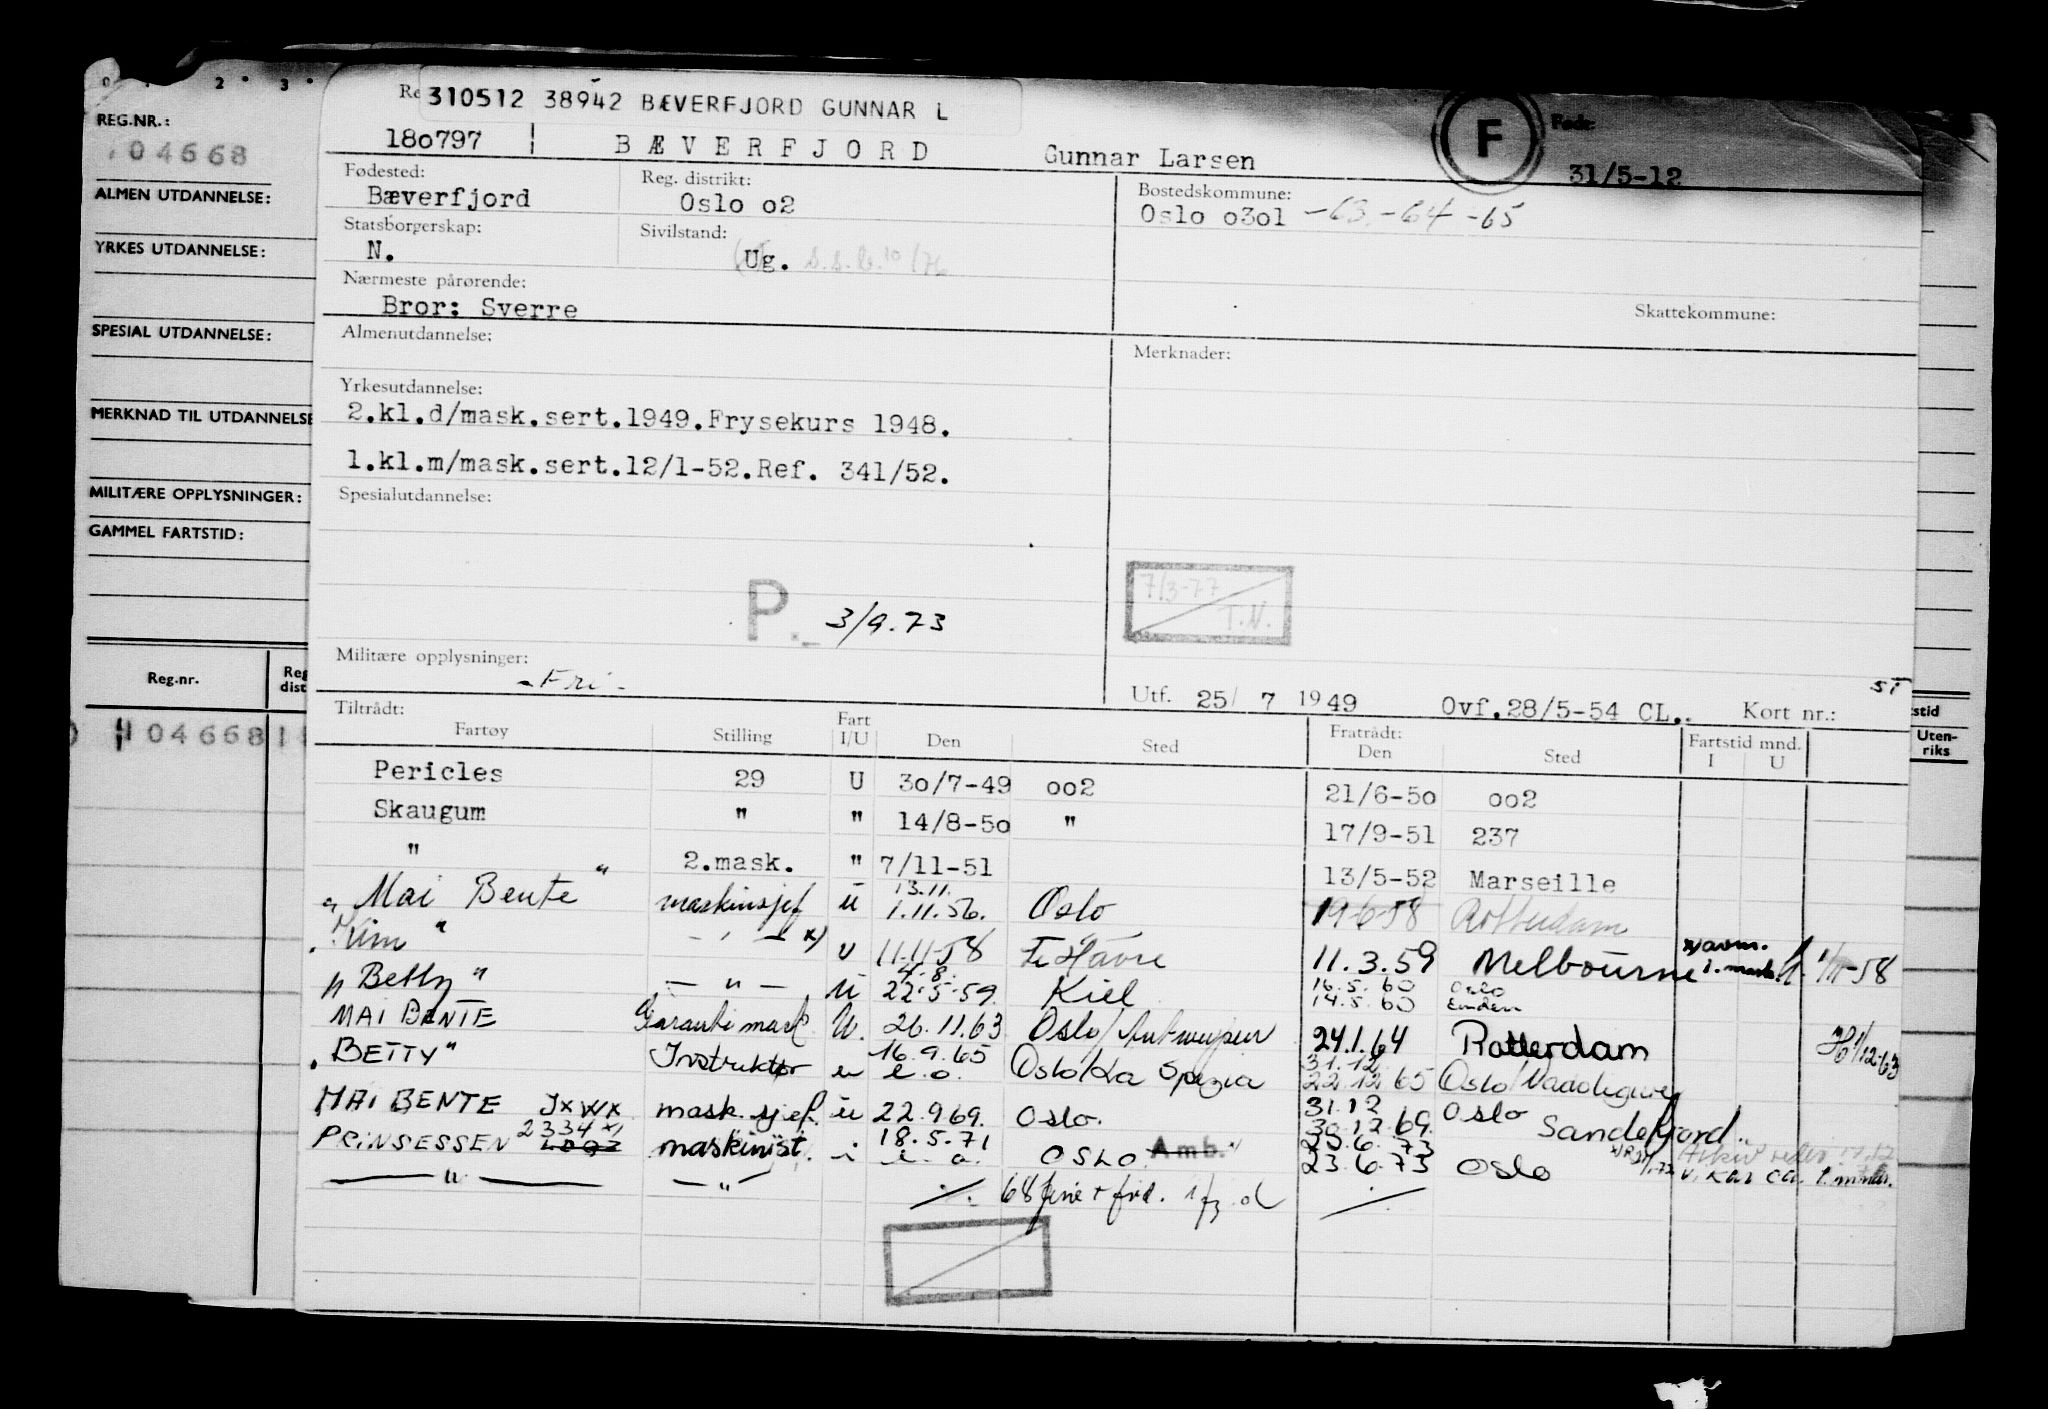 0 1 2 3
REG.NR.:
104668
ALMEN UTDANNELSE:
YRKES UTDANNELSE:
SPESIAL UTDANNELSE:
MERKNAD TIL UTDANNELSE
MILITÆRE OPPLYSNINGER:
GAMMEL FARTSTID:
Reg.nr. Reg dist
104668 1
stid
Uten-
riks
Re 310512 38942 BÆVERFJORD GUNNAR L
18o797 BÆVERFJORD Gunnar Larsen F Født: 31/5-12
Fødested: Reg. distrikt: Bostedskommune:
Bæverfjord Oslo o2 Oslo o3o1 -63-64-65
Statsborgerskap: Sivilstand:
N. Ug.
Nærmeste pårørende:
Bror: Sverre Skattekommune:
Almenutdannelse: Merknader:
Yrkesutdannelse:
2.kl.d/mask.sert.1949.Frysekurs 1948.
1.kl.m/mask.sert.12/1-52.Ref. 341/52.
Spesialutdannelse:
7/3-77
T.N.
P. 3/9.73
Militære opplysninger:
-Fri- ST
Utf. 25/ 7 1949 Ovf.28/5-54 CL.. Kort nr.:
Tiltrådt: Fratrådt:
Fartøy Stilling Fart I/U Den Sted Den Sted Fartstid mnd. I U
Pericles 29 U 3o/7-49 oo2 21/6-5o oo2
Skaugum " " 14/8-5o " 17/9-51 237
" 2.mask. " 7/11-51 13/5-52 Marseille
13.11.
"Mai Bente" maskinsjef u 1.11.56. Oslo 19-6-58 Rotterdam
"Kim" - " - x) u 11.11-58 Le Havre 11.3.59 Melbourne x) avm. 1. mask. 1/11-58
4.8. 16.5.60 Oslo
"Betty" - " - u 22.5.59. Kiel 14.5.60 Emden
MAI BENTE Garanti mask. U. 26.11.63 Oslo/Antwerpen 24.1.64 Rotterdam 1/12-63
16.9.65 31.12.
"BETTY" Instruktør u e.o. Oslo/La Spezia 22.12.65 Oslo/
31.12 Oslo
MAI BENTE JXWX mask.sjef. u 22.9.69. Oslo. 30.12.69. Sandefjord.
2334 x) 18.5.71 25.6.73
PRINSESSEN maskinist. i e. o. OSLO Amb. 23.6.73 Oslo
— " — — " — ./. 68 ./.